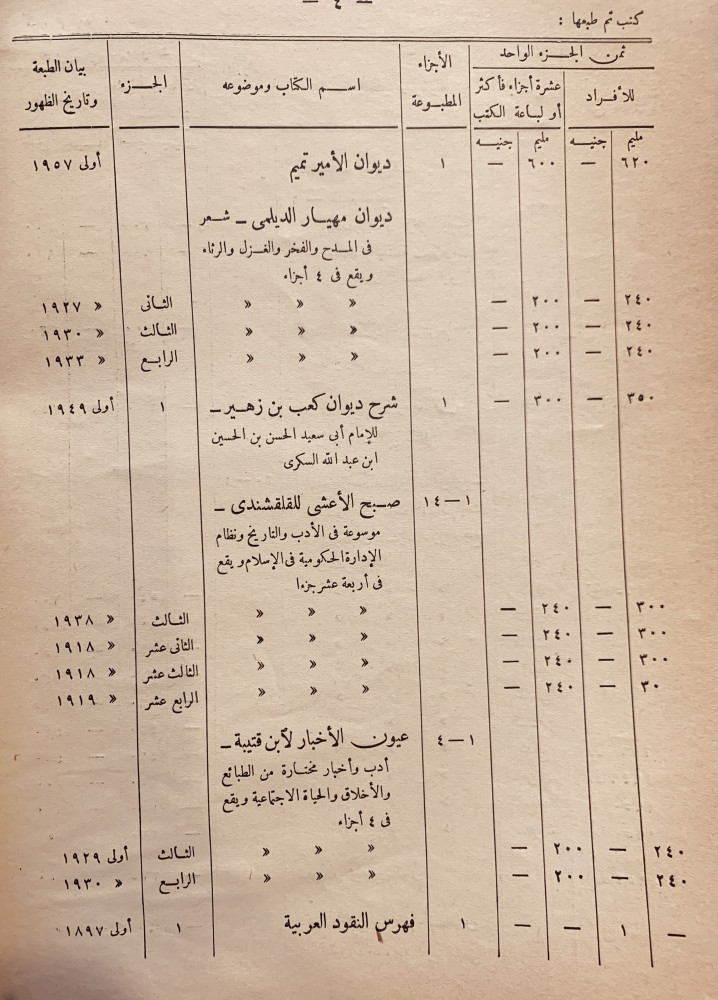 — ٤ —
كتب تم طبعها :
ثمن الجزء الواحد | الأجزاء المطبوعة | اسم الكتاب وموضوعه | الجزء | بيان الطبعة وتاريخ الظهور
للأفراد | عشرة أجزاء فأكثر أو لباعة الكتب
مليم | جنيه | مليم | جنيه
٦٢٠ | — | ٦٠٠ | — | ١ | ديوان الأمير تميم | أولى ١٩٥٧
ديوان مهيار الديلمى – شعر
فى المدح والفخر والغزل والرثاء
ويقع فى ٤ أجزاء
٢٤٠ | — | ٢٠٠ | — | » » » | الثانى | » ١٩٢٧
٢٤٠ | — | ٢٠٠ | — | » » » | الثالث | » ١٩٣٠
٢٤٠ | — | ٢٠٠ | — | » » » | الرابع | » ١٩٣٣
٣٥٠ | — | ٣٠٠ | — | ١ | شرح ديوان كعب بن زهير – | ١ | أولى ١٩٤٩
للإمام أبى سعيد الحسن بن الحسين
ابن عبد الله السكرى
١ – ١٤ | صبح الأعشى للقلقشندى –
موسوعة فى الأدب والتاريخ ونظام
الإدارة الحكومية فى الإسلام ويقع
فى أربعة عشر جزءا
٣٠٠ | — | ٢٤٠ | — | » » » | الثالث | » ١٩٣٨
٣٠٠ | — | ٢٤٠ | — | » » » | الثانى عشر | » ١٩١٨
٣٠٠ | — | ٢٤٠ | — | » » » | الثالث عشر | » ١٩١٨
٣٠ | — | ٢٤٠ | — | » » » | الرابع عشر | » ١٩١٩
١ – ٤ | عيون الأخبار لابن قتيبة –
أدب وأخبار مختارة من الطبائع
والأخلاق والحياة الاجتماعية ويقع
فى ٤ أجزاء
٢٤٠ | — | ٢٠٠ | — | » » » | الثالث | أولى ١٩٢٩
٢٤٠ | — | ٢٠٠ | — | » » » | الرابع | » ١٩٣٠
— | ١ | — | — | ١ | فهرس النقود العربية | ١ | أولى ١٨٩٧